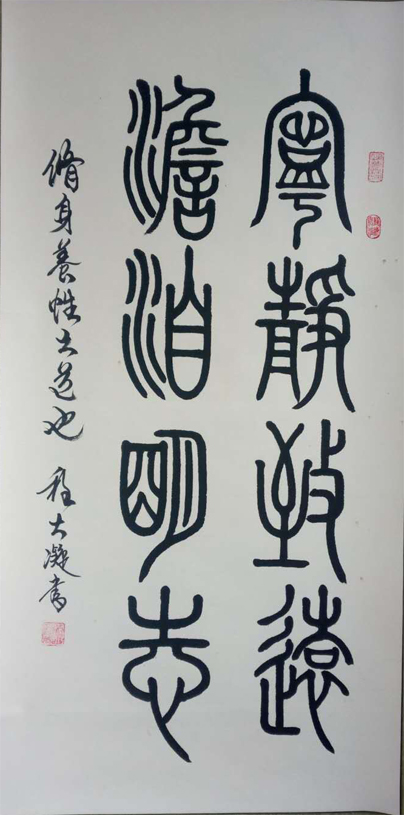 寧靜致遠
澹泊明志
脩身養性大道也 程大凝書